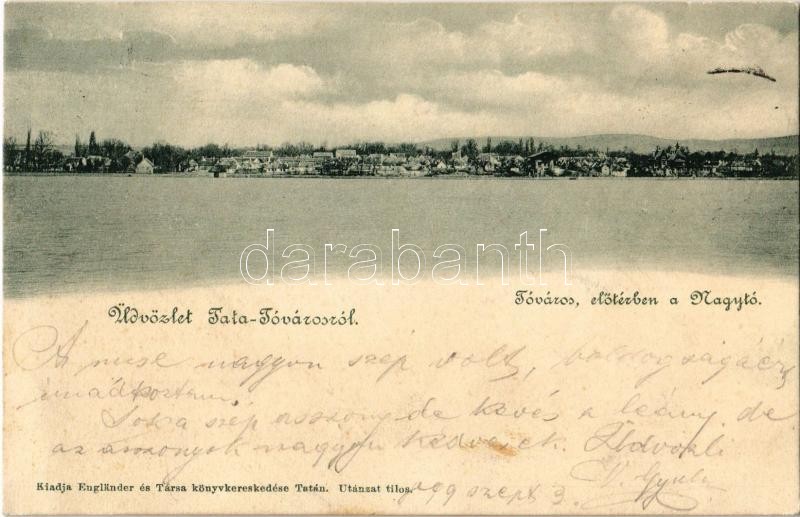 darabanth
Tóváros, előtérben a Nagytó.
Üdvözlet Tata-Tóvárosról.
A mise nagyon szép volt, boldogságáért
imádkoztam.
Sok a szép asszony de kevés a leány, de
az asszonyok nagyon kedvesek. Üdvözli
Gyula
szept 3.
Kiadja Engländer és Társa könyvkereskedése Tatán. Utánzat tilos.